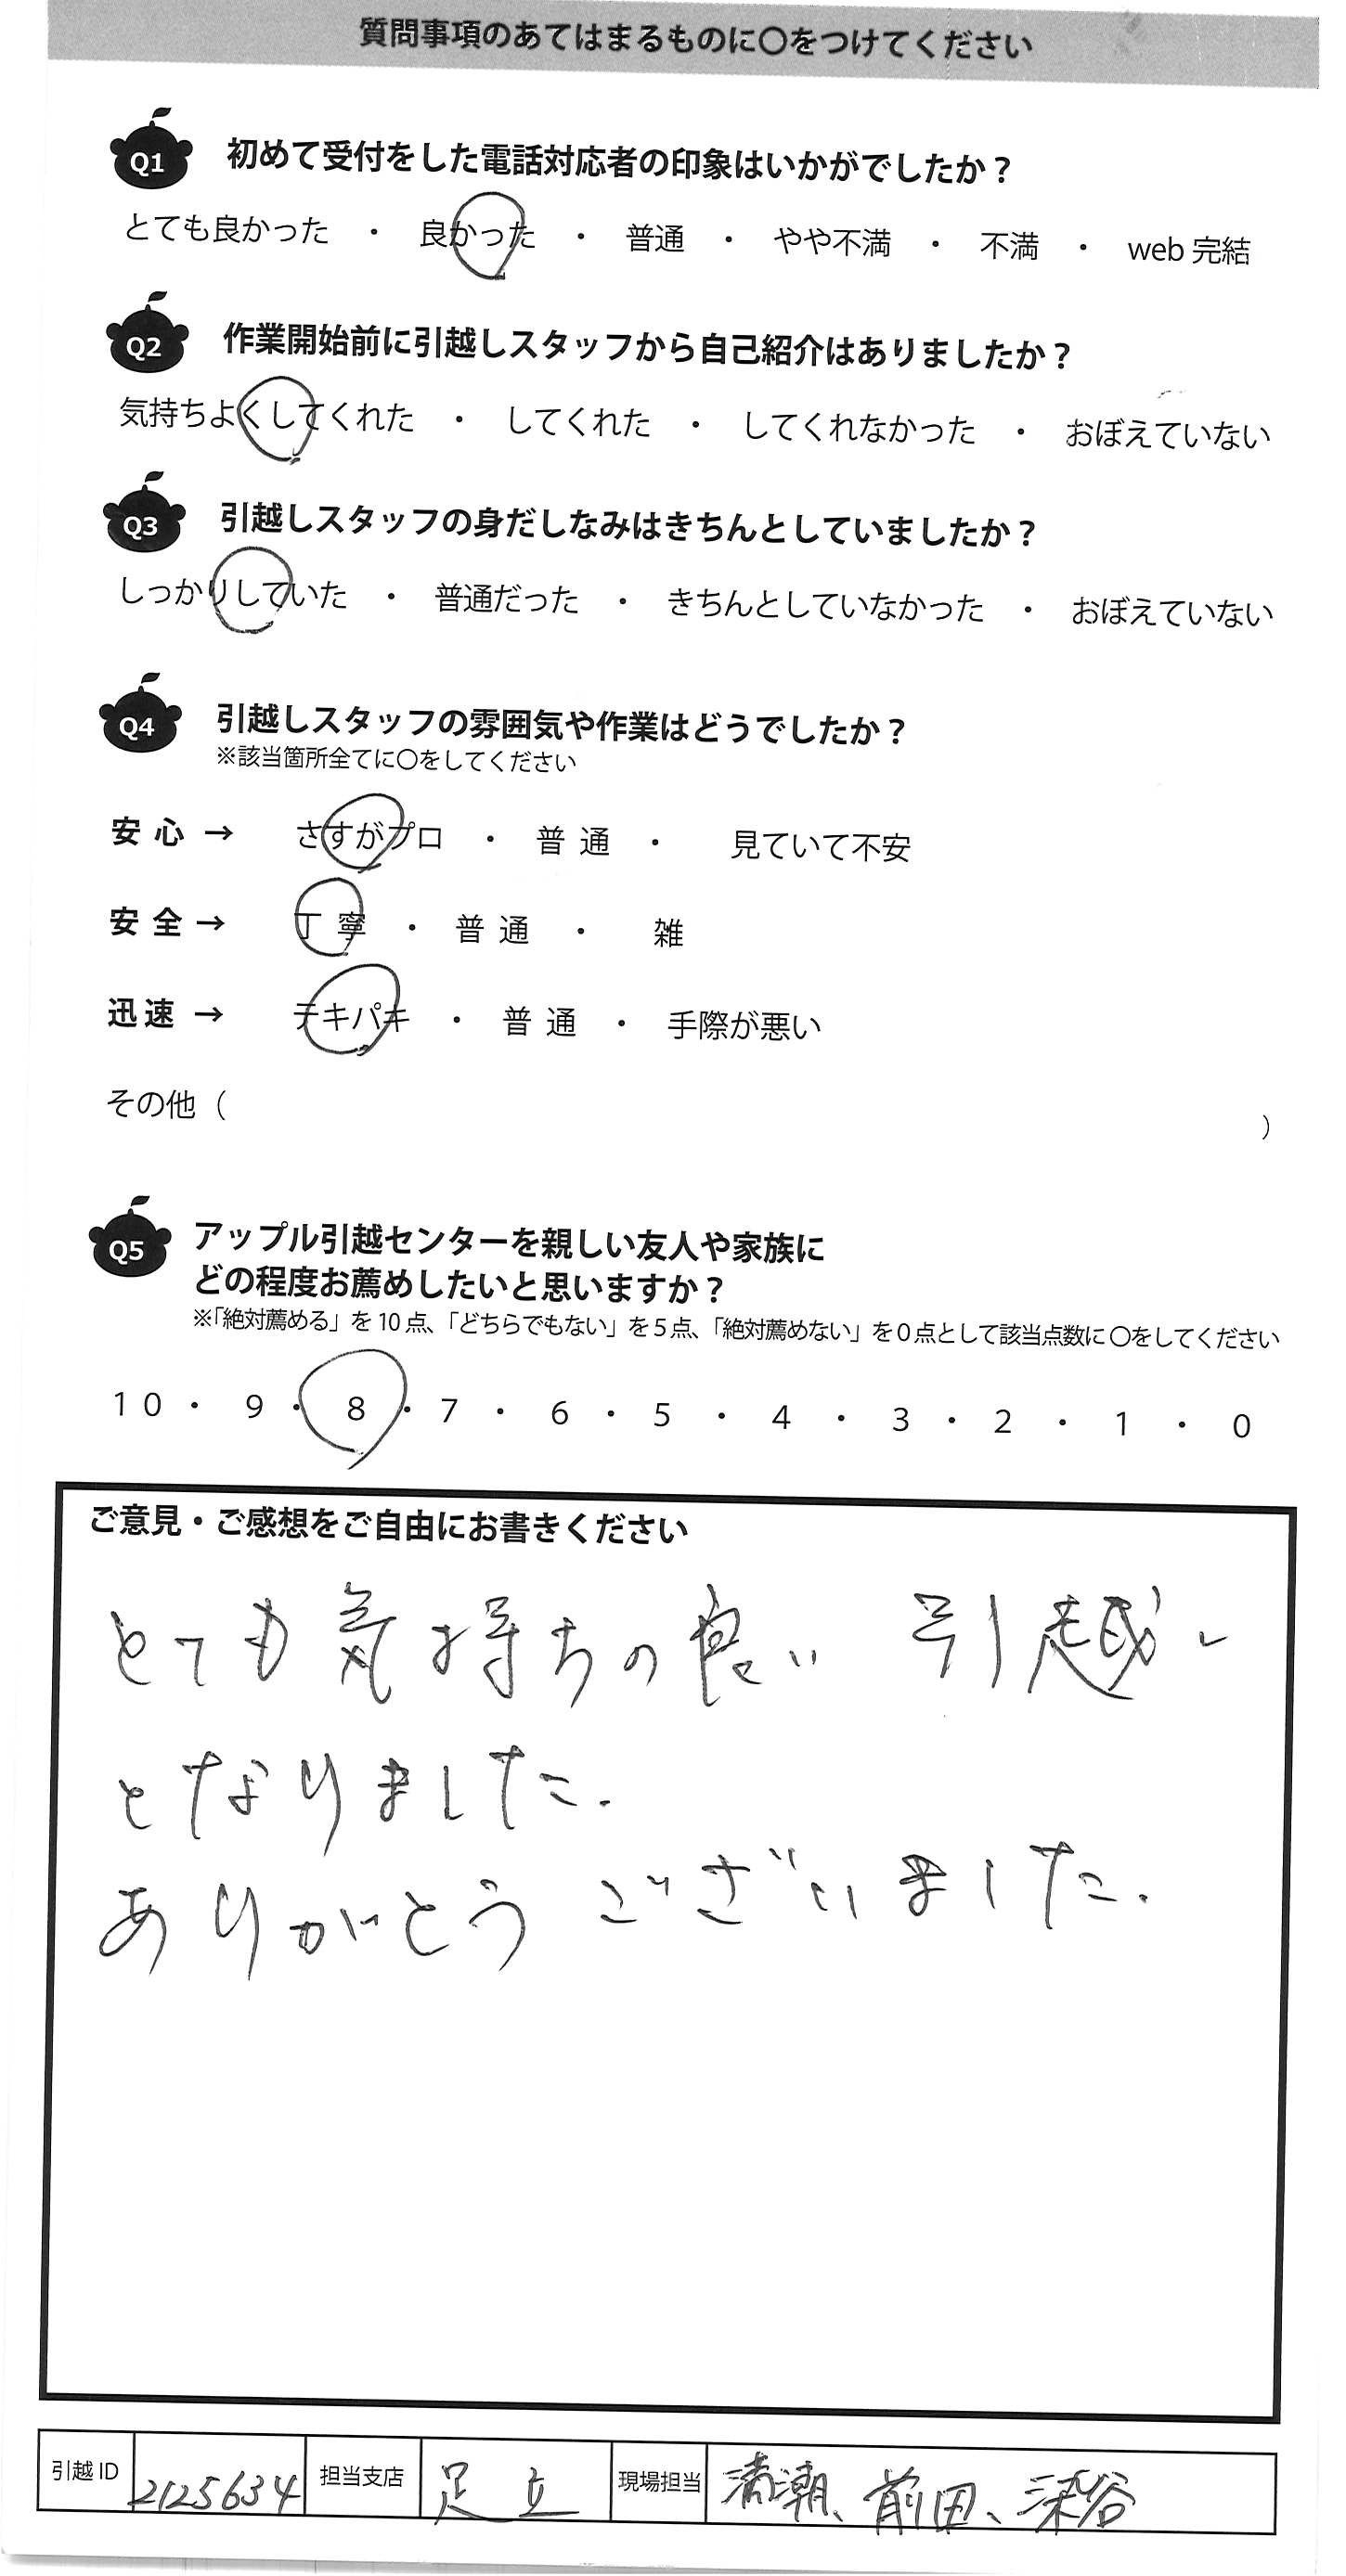 質問事項のあてはまるものに〇をつけてください
Q1 初めて受付をした電話対応者の印象はいかがでしたか？
とても良かった ・ 良かった ・ 普通 ・ やや不満 ・ 不満 ・ web 完結
Q2 作業開始前に引越しスタッフから自己紹介はありましたか？
気持ちよくしてくれた ・ してくれた ・ してくれなかった ・ おぼえていない
Q3 引越しスタッフの身だしなみはきちんとしていましたか？
しっかりしていた ・ 普通だった ・ きちんとしていなかった ・ おぼえていない
Q4 引越しスタッフの雰囲気や作業はどうでしたか？
※該当箇所全てに〇をしてください
安心 → さすがプロ ・ 普通 ・ 見ていて不安
安全 → 丁寧 ・ 普通 ・ 雑
迅速 → テキパキ ・ 普通 ・ 手際が悪い
その他（ ）
Q5 アップル引越センターを親しい友人や家族に
どの程度お薦めしたいと思いますか？
※「絶対薦める」を 10 点、「どちらでもない」を 5 点、「絶対薦めない」を 0 点として該当点数に 〇をしてください
10 ・ 9 ・ 8 ・ 7 ・ 6 ・ 5 ・ 4 ・ 3 ・ 2 ・ 1 ・ 0
ご意見・ご感想をご自由にお書きください
とても気持ちの良い 引越し
となりました.
ありがとうございました.
引越 ID 2125634 担当支店 足立 現場担当 前田、